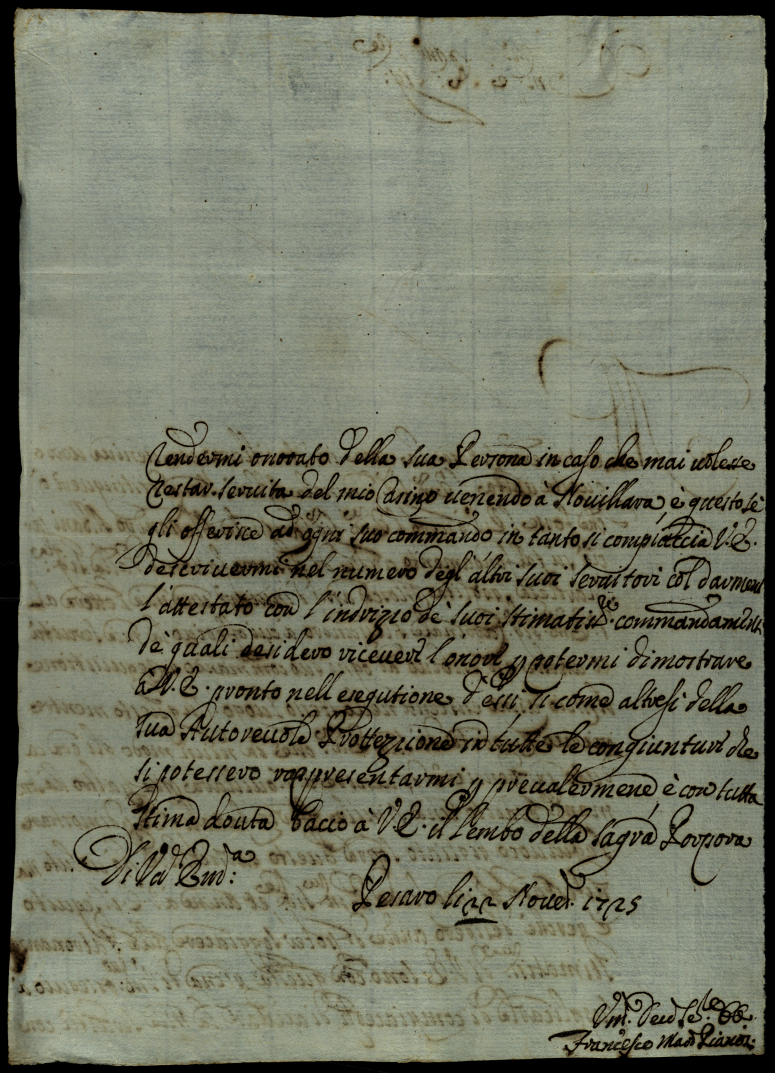 rendermi onorato della sua Persona in caso che mai volesse
restar servita del mio Casino venendo à Novillara, e questo se
gli offerisce ad ogni suo commando in tanto si compiaccia V.E.
descrivermi nel numero degl'altri suoi servitori col darmene
l'attestato con l'indrizio de suoi stimatis.mi commandamenti
de quali desidero ricever l'onore p potermi dimostrare
à V.E. pronto nell esegutione d'essi, si come altresi della
sua Autorevole Prottezzione in tutte le congiunture che
si potessero rappresentarmi p prevalermene è con tutta
stima douta baccio à V.E. il lembo della sagra Porpora
Di V.ra Em.a
Pesaro li 22 Nov.e 1725
Um. Dev. Se.re
Francesco Mari